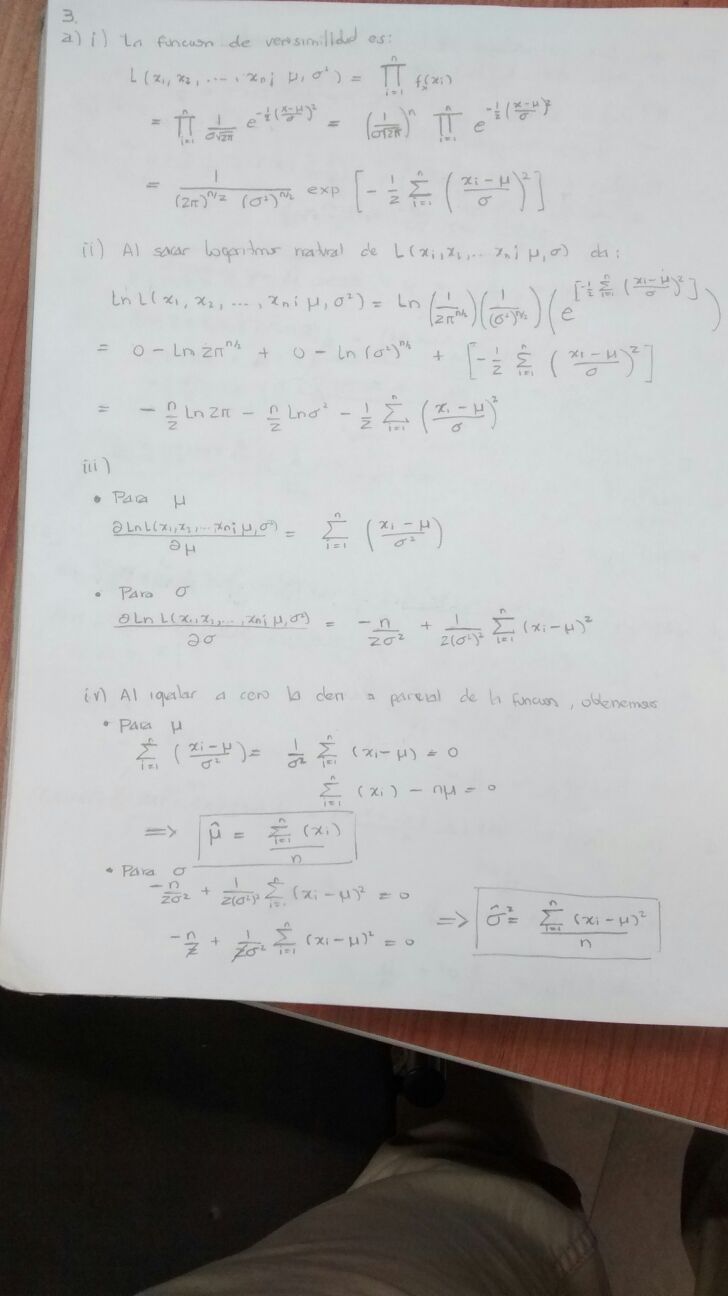 3.
a) i) La funcion de verosimilitud es:
L(x₁, x₂, ..., xₙ; μ, σ²) = ∏ᵢ₌₁ⁿ fₓ(xᵢ)
= ∏ᵢ₌₁ⁿ 1/(σ√2π) e^(-½((x-μ)/σ)²) = (1/(σ√2π))ⁿ ∏ᵢ₌₁ⁿ e^(-½((x-μ)/σ)²)
= 1/((2π)^(n/2) (σ²)^(n/2)) exp [-½ Σᵢ₌₁ⁿ ((xᵢ-μ)/σ)²]
ii) Al sacar logaritmo natural de L(x₁, x₂, ... xₙ; μ, σ) da:
Ln L(x₁, x₂, ..., xₙ; μ, σ²) = Ln (1/2π^(n/2)) (1/(σ²)^(n/2)) (e^[-½ Σᵢ₌₁ⁿ ((xᵢ-μ)/σ)²])
= 0 - Ln 2π^(n/2) + 0 - ln (σ²)^(n/2) + [-½ Σᵢ₌₁ⁿ ((xᵢ-μ)/σ)²]
= - n/2 Ln 2π - n/2 Ln σ² - ½ Σᵢ₌₁ⁿ ((xᵢ-μ)/σ)²
iii)
• Para μ
∂Ln L(x₁, x₂, ... xₙ; μ, σ²)/∂μ = Σᵢ₌₁ⁿ ((xᵢ-μ)/σ²)
• Para σ
∂Ln L(x₁, x₂, ..., xₙ; μ, σ²)/∂σ = -n/2σ² + 1/2(σ²)² Σᵢ₌₁ⁿ (xᵢ-μ)²
iv) Al igualar a cero la parcial de la funcion, obtenemos
• Para μ
Σᵢ₌₁ⁿ ((xᵢ-μ)/σ²) = 1/σ² Σᵢ₌₁ⁿ (xᵢ-μ) = 0
Σᵢ₌₁ⁿ (xᵢ) - nμ = 0
=> μ̂ = Σᵢ₌₁ⁿ (xᵢ)/n
• Para σ
-n/2σ² + 1/2(σ²)² Σᵢ₌₁ⁿ (xᵢ-μ)² = 0
-n/2 + 1/2σ² Σᵢ₌₁ⁿ (xᵢ-μ)² = 0 => σ̂² = Σᵢ₌₁ⁿ (xᵢ-μ)²/n